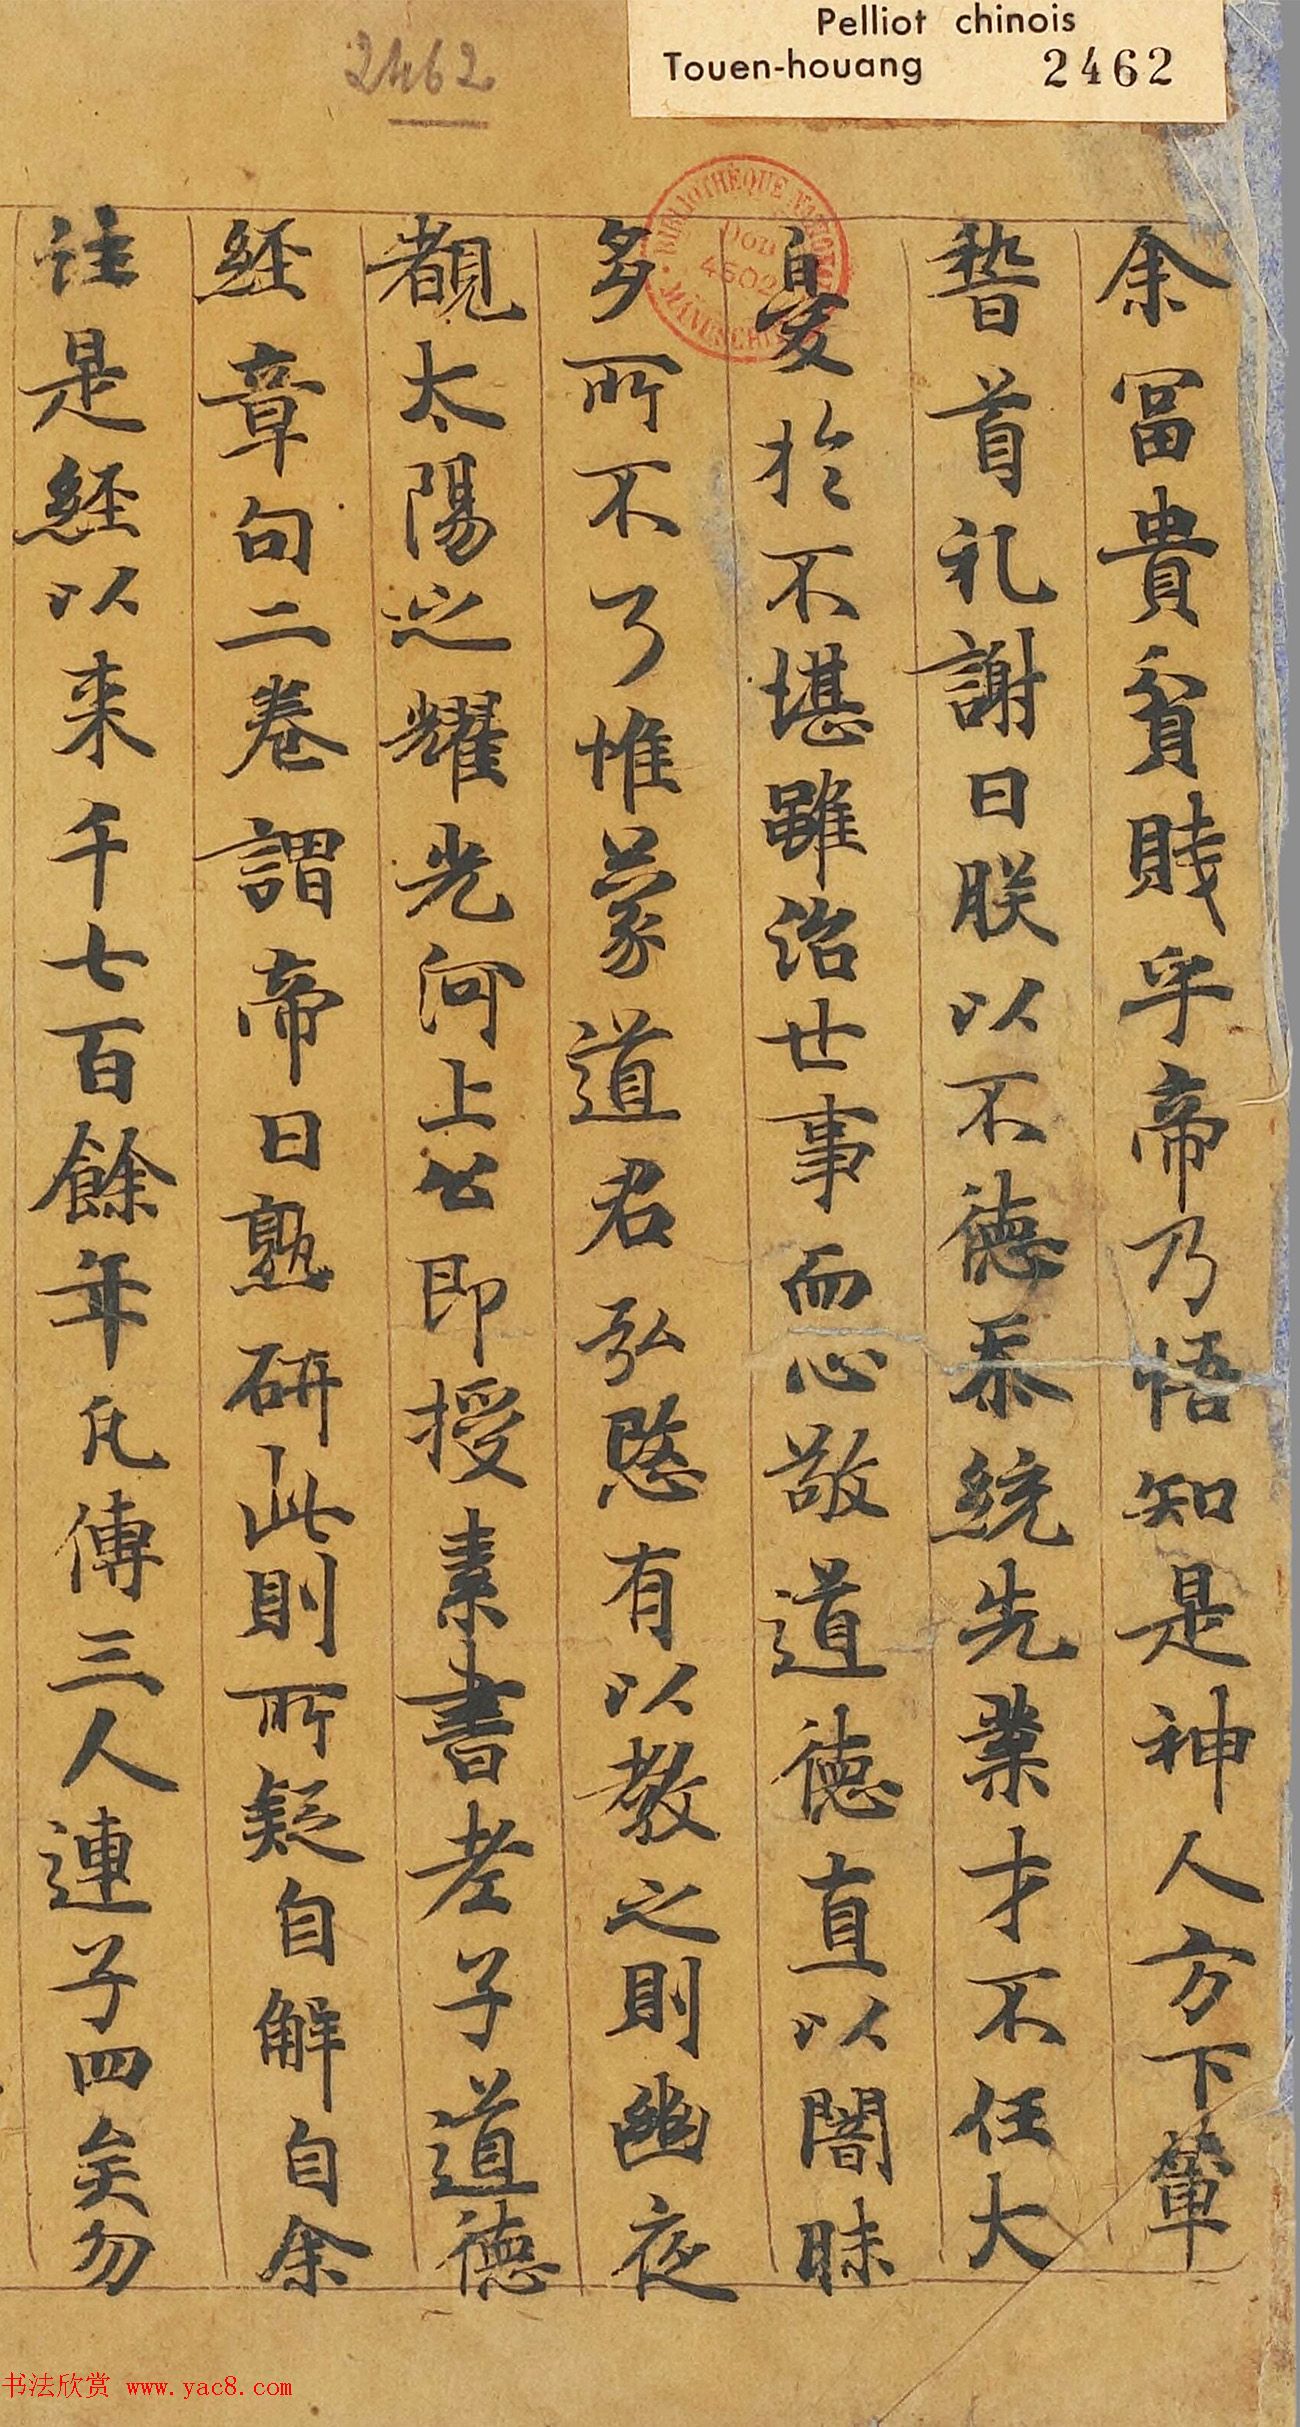 Pelliot chinois
Touen-houang 2462
2462
BIBLIOTHÈQUE NATIONALE
DOD
4502
余冨貴貧賤乎帝乃悟知是神人方下輦
稽首礼謝曰朕以不德忝統先業才不任大
憂於不堪雖治世事而心敬道德直以闇昧
多所不了惟蒙道君弘愍有以教之則幽夜
覩太陽之耀光河上公即授素書老子道德
經章句二卷謂帝曰熟研此則所疑自解自余
注是經以来千七百餘年凡傳三人連子四矣勿
书法欣赏 www.yac8.com